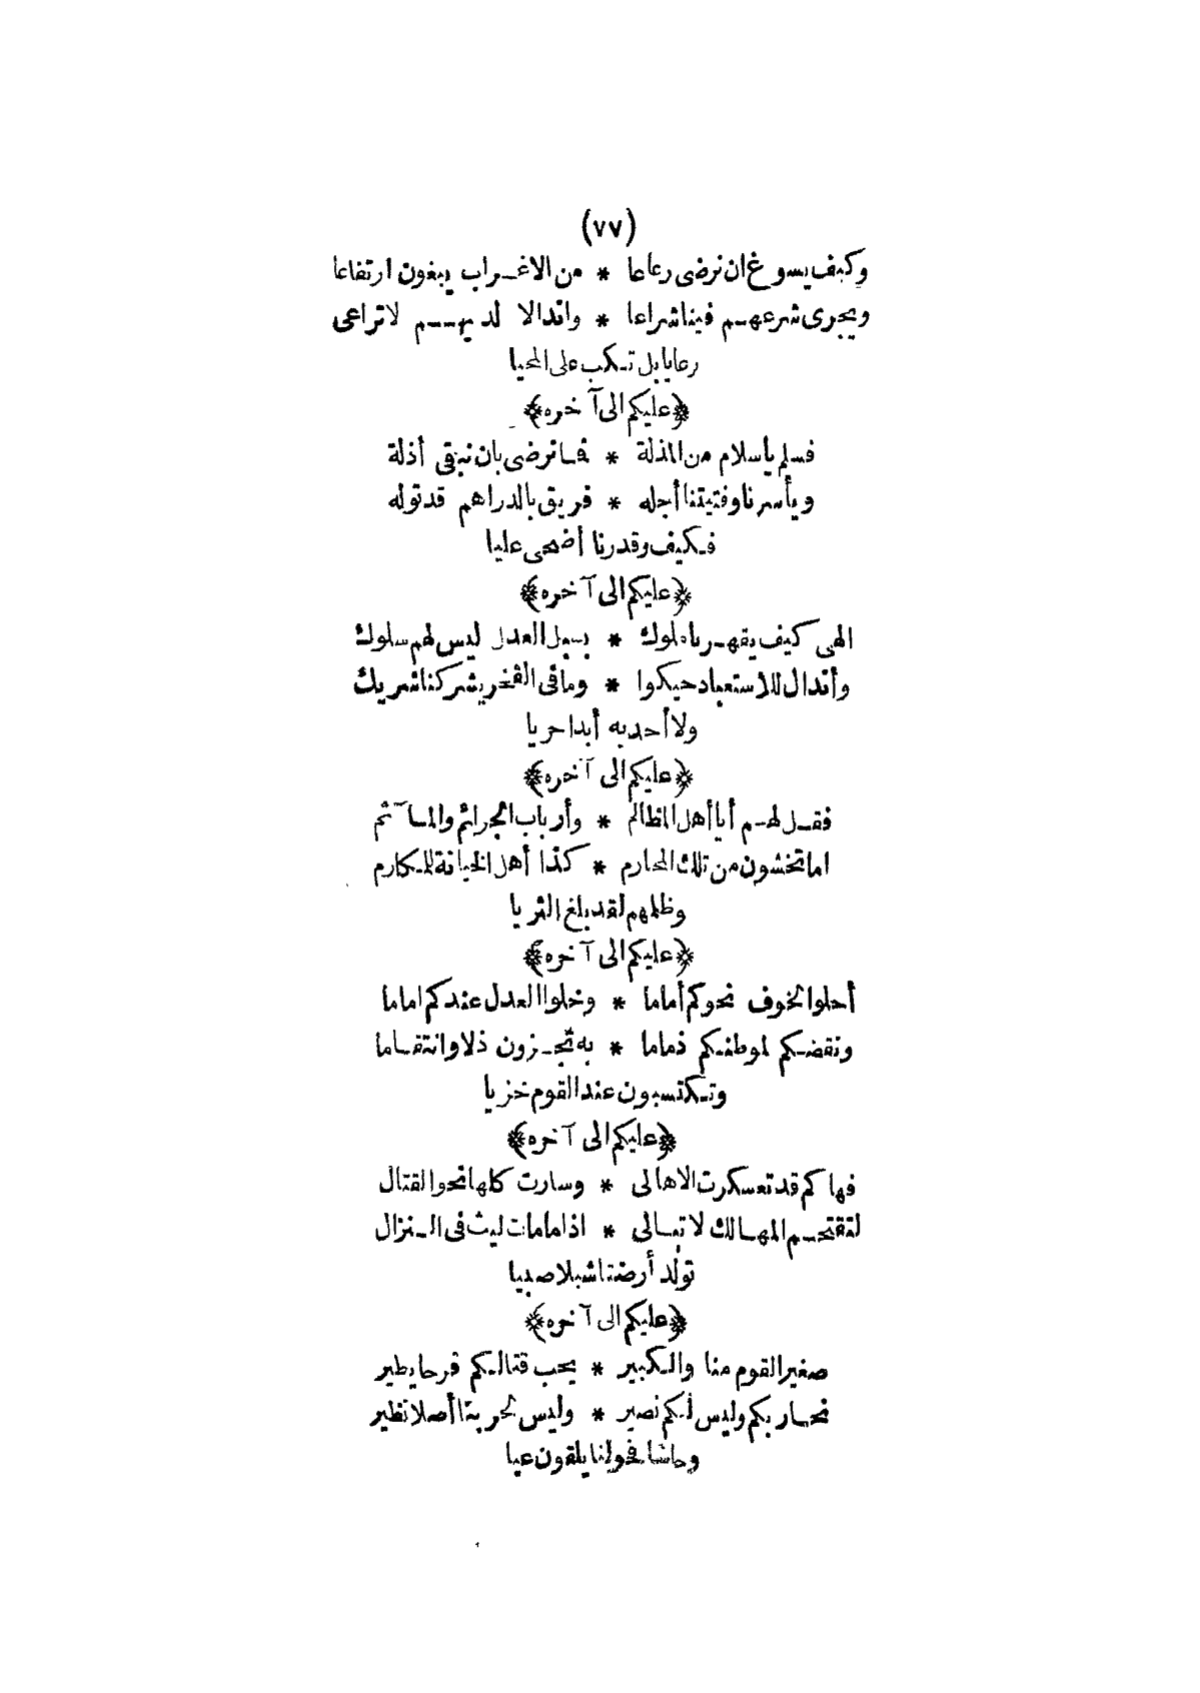 (٧٧)
وكيف يسوغ ان نرضى رعاعا * من الاغراب يبغون ارتفاعا
ويجرى شرعهم فينا شراعا * واندالا لديهم لا تراعى
رعايا بل تكب على المحيا
﴿عليكم الى آخره﴾
فسلم يا سلام من المذلة * فما نرضى بان نبقى أذلة
ويأسرنا وفتيتنا أجله * فريق بالدراهم قد توله
فكيف وقدرنا أضحى عليا
﴿عليكم الى آخره﴾
الهى كيف يقهرنا ملوك * بسبل العدل ليس لهم سلوك
وأندال للاستعباد حيكوا * وما فى الفخر يشركنا شريك
ولا أحد به أبدا حريا
﴿عليكم الى آخره﴾
فقل لهم أيا أهل المظالم * وأرباب الجرائم والمآثم
اما تخشون من تلك المحارم * كذا أهل الخيانة للمكارم
وظلمهم لقد بلغ الثريا
﴿عليكم الى آخره﴾
أحلوا الخوف نحوكم أماما * وخلوا العدل عندكم اماما
ونقضكم لموطنكم ذماما * به تجزون ذلا وانتقاما
وتكتسبون عند القوم خزيا
﴿عليكم الى آخره﴾
فها كم قد تعسكرت الاهالى * وسارت كلها نحو القتال
لتقتحم المهالك لا تبالى * اذا ما مات ليث فى النزال
تولد أرضنا شبلا صبيا
﴿عليكم الى آخره﴾
صغير القوم منا والكبير * يحب قتالكم فرحا يطير
نحاربكم وليس لكم نصير * وليس لحربنا أصلا نظير
وحاشا فحولنا يلقون عيا